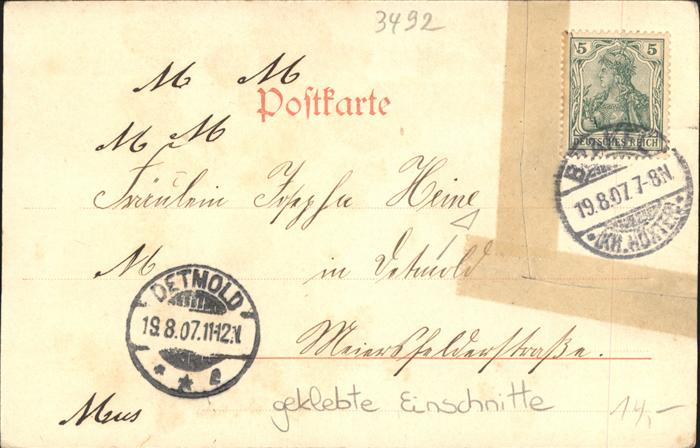 3492
5 5
DEUTSCHES REICH
M M
Postkarte
M M
Fräulein Josepha Heine
19.8.07. 7-8N
(KR. HÖXTER)
M in Detmold
DETMOLD
19.8.07. 11-12.N
Meiersfelderstraße.
geklebte Einschnitte 14,-